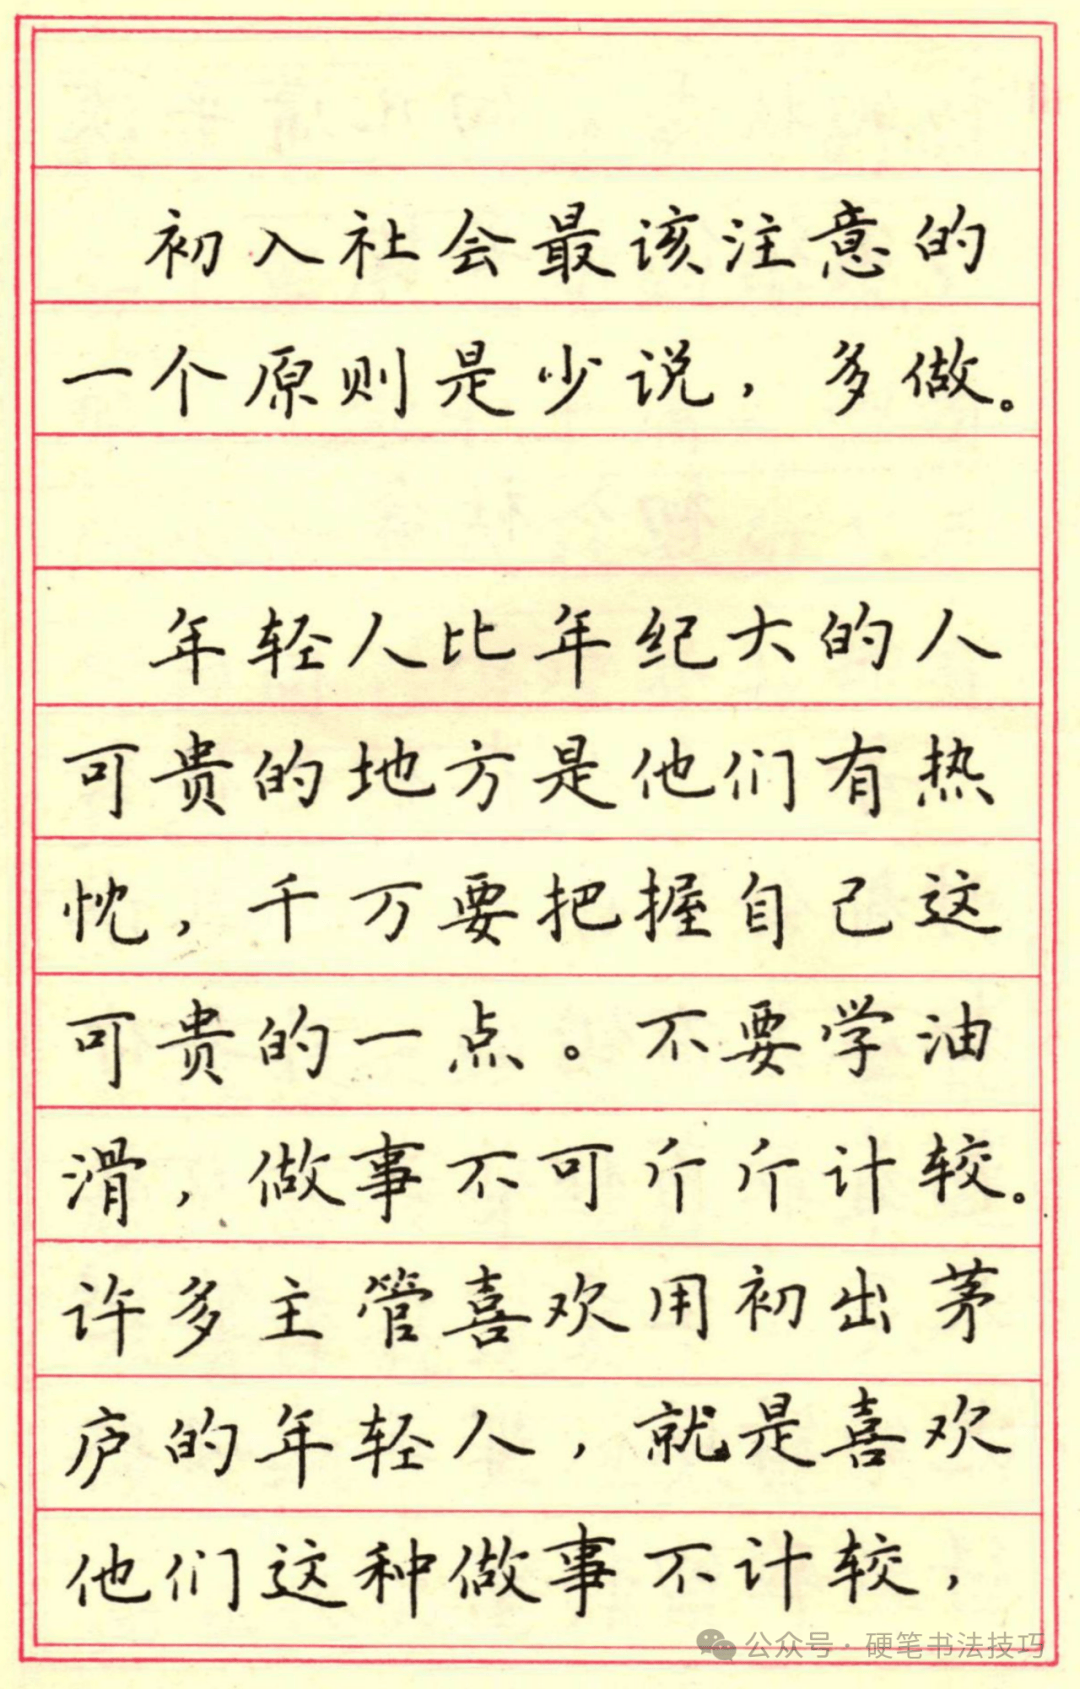 初入社会最该注意的
一个原则是少说，多做。
年轻人比年纪大的人
可贵的地方是他们有热
忱，千万要把握自己这
可贵的一点。不要学油
滑，做事不可斤斤计较。
许多主管喜欢用初出茅
庐的年轻人，就是喜欢
他们这种做事不计较，
公众号·硬笔书法技巧